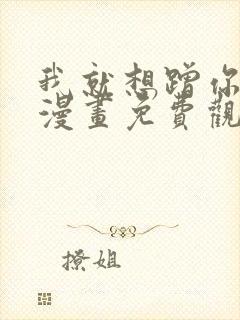 我就想蹭你
漫畫免費觀
撩姐